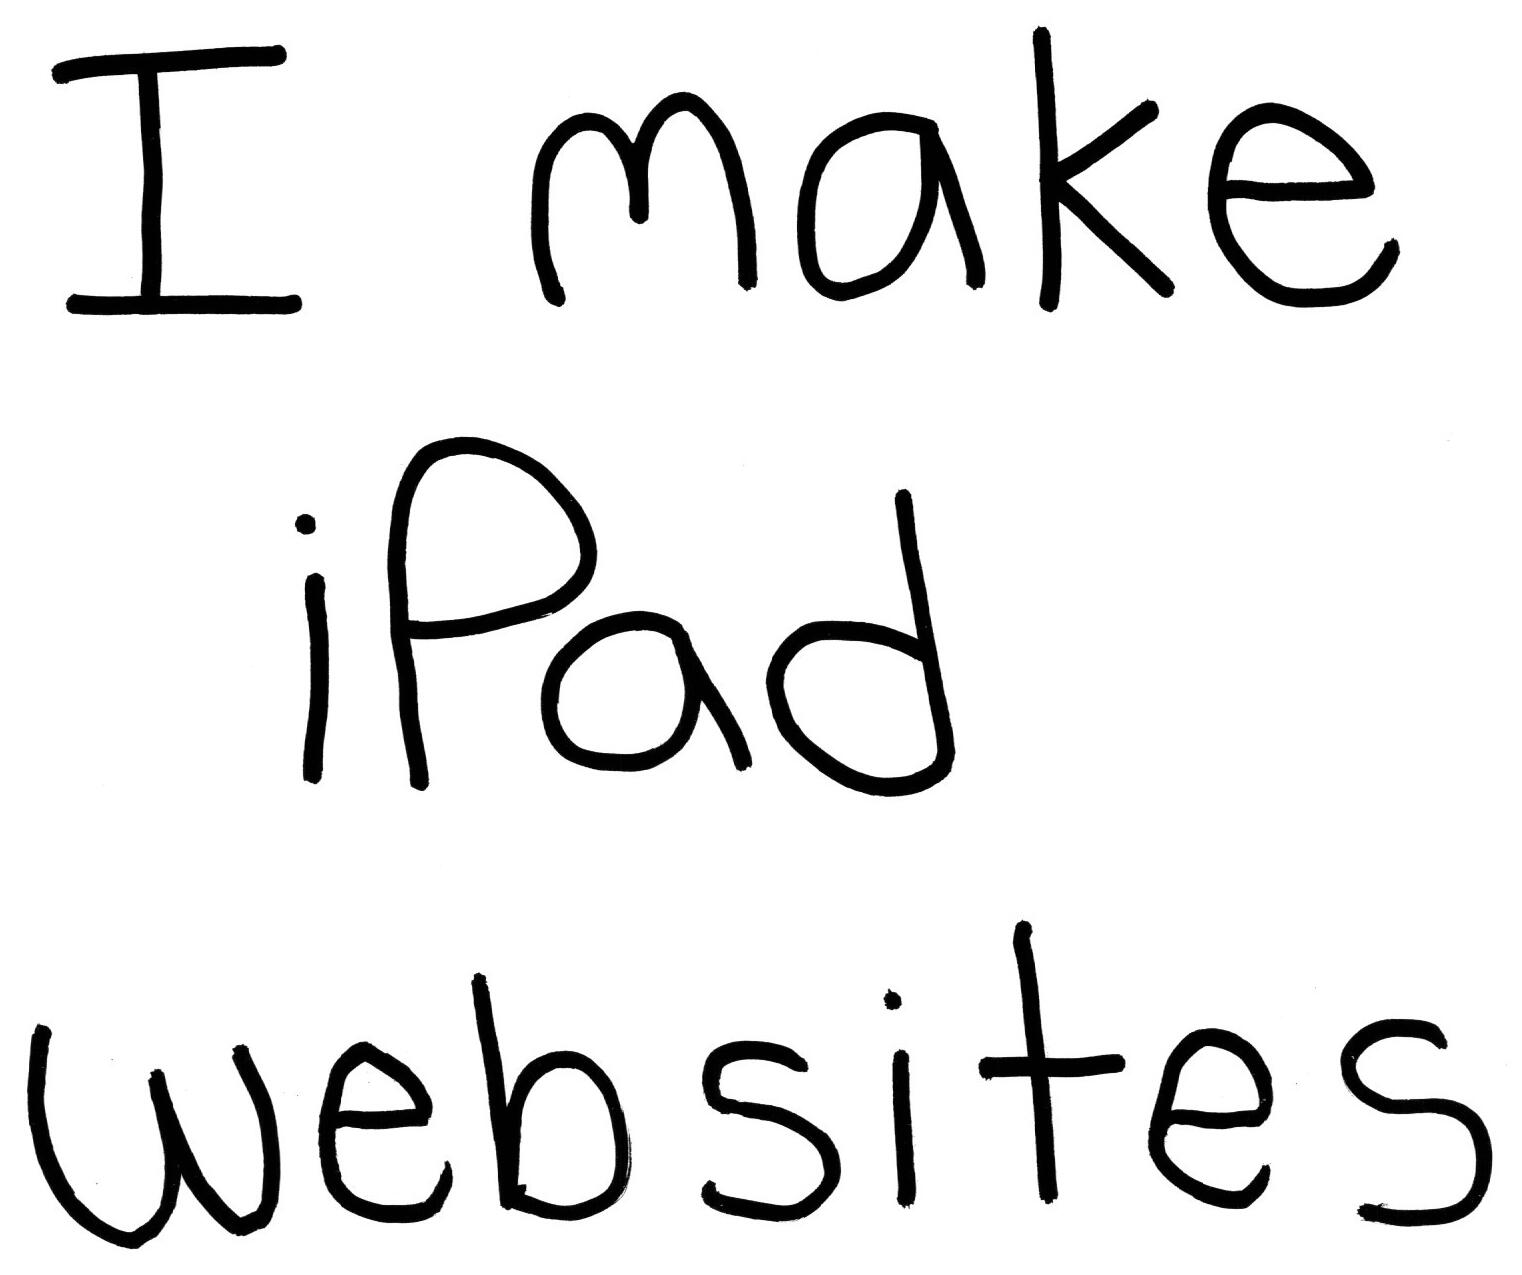 I make
iPad
websites